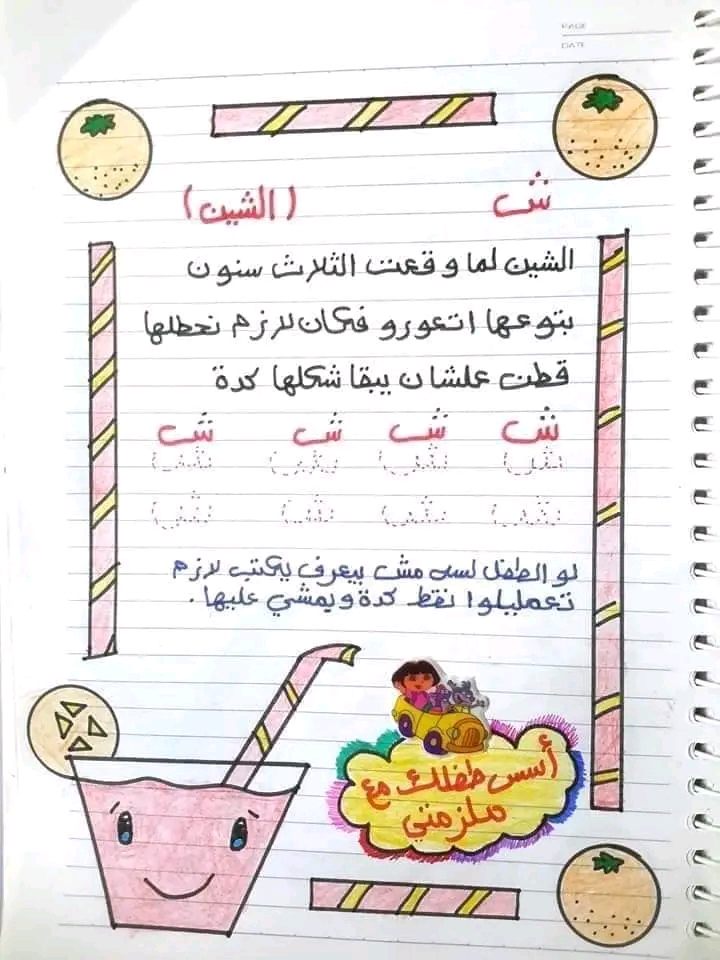 PAGE
DATE
ش (الشين)
الشين لما وقعت الثلاث سنون
بتوعها اتعورو فكان لازم نحطلها
قطن علشان يبقا شكلها كدة
ش ش ش ش
ش ش ش ش
ش ش ش ش
لو الطفل لسه مش بيعرف يكتب لازم
تعمليلوا نقط كدة ويمشي عليها.
أسس طفلك مع
ملزمتي